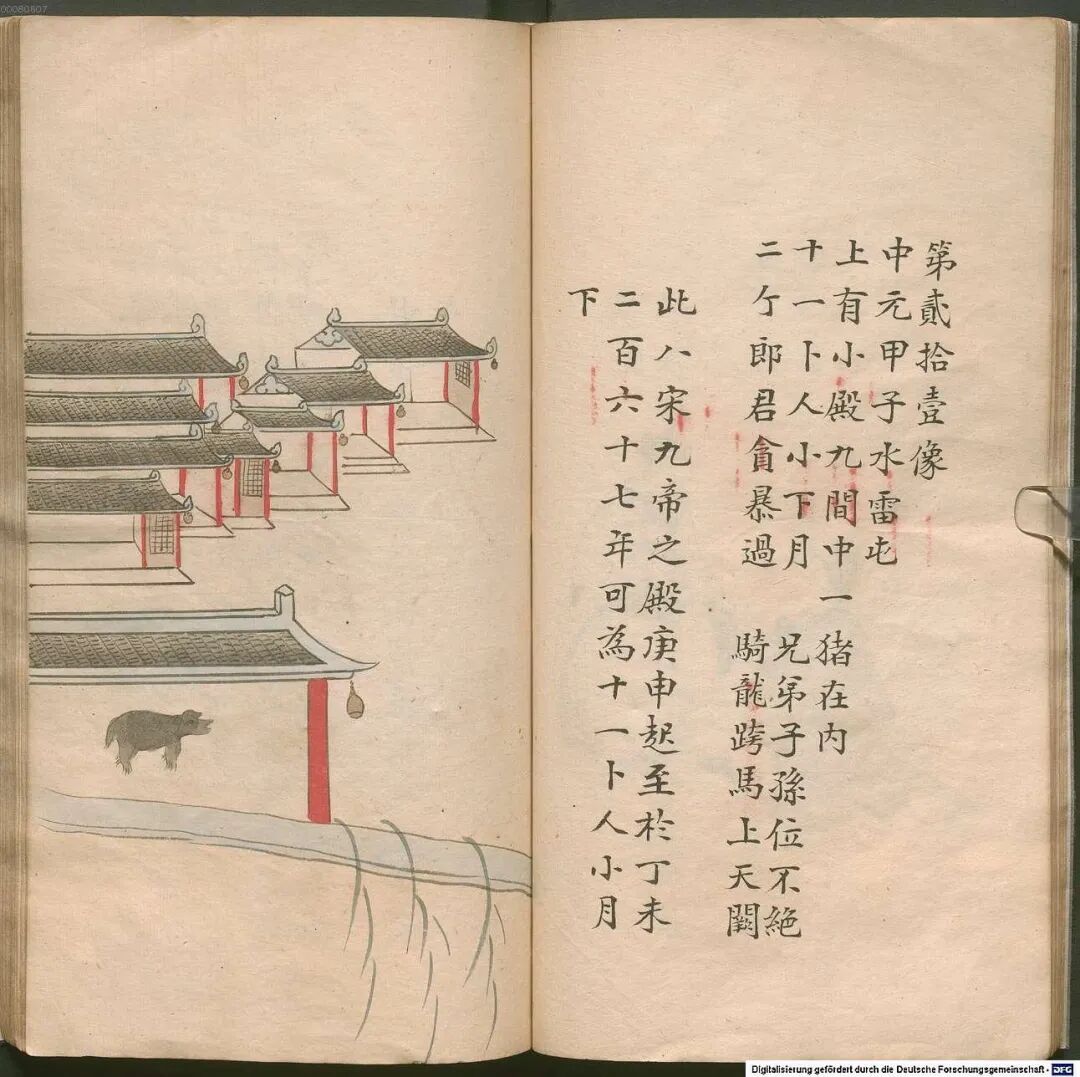 00080807
第貳拾壹像
中元甲子水雷屯
上有小殿九間中一猪在内
十一卜人小下月 兄弟子孫位不絶
二亇郎君貪暴過 騎龍跨馬上天闕
此八宋九帝之殿庚申起至於丁未
二百六十七年可為十一卜人小月
下
Digitalisierung gefördert durch die Deutsche Forschungsgemeinschaft - DFG